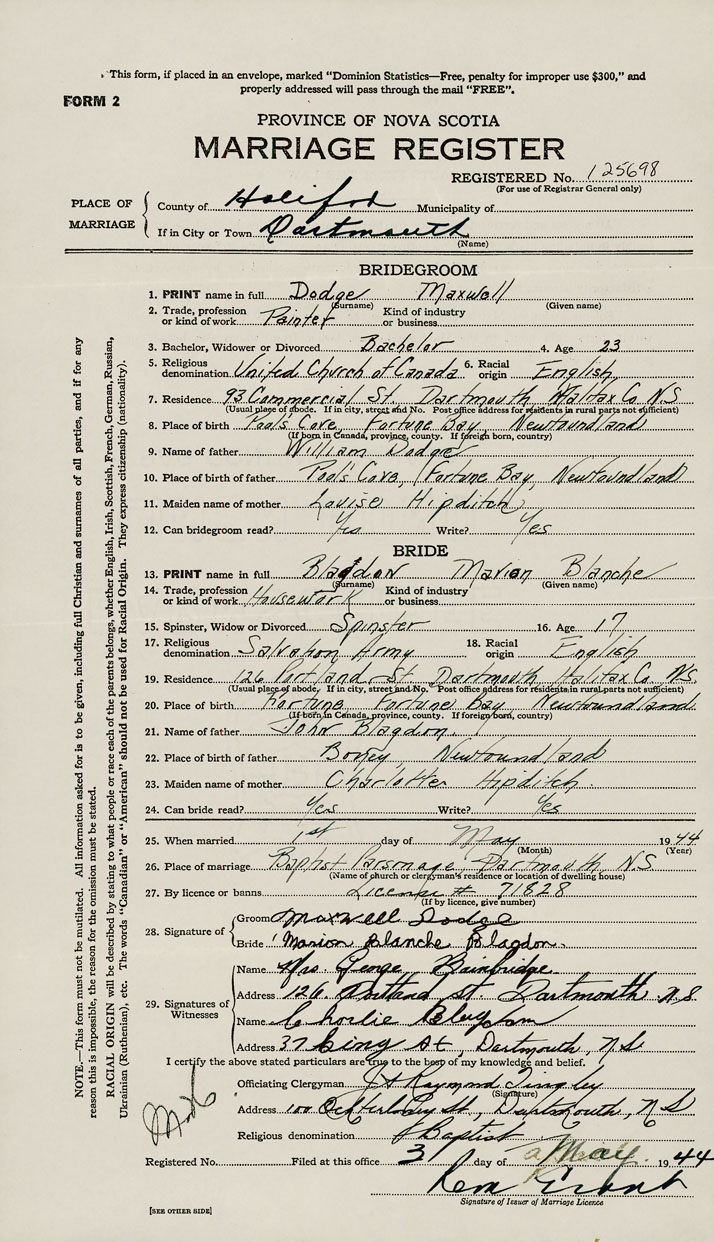 This form, if placed in an envelope, marked "Dominion Statistics—Free, penalty for improper use $300," and
properly addressed will pass through the mail "FREE".
FORM 2
PROVINCE OF NOVA SCOTIA
MARRIAGE REGISTER
REGISTERED No. 125698
(For use of Registrar General only)
PLACE OF MARRIAGE
County of Halifax Municipality of
If in City or Town Dartmouth
(Name)
BRIDEGROOM
1. PRINT name in full Dodge Maxwell
(Surname) (Given name)
2. Trade, profession or kind of work Painter Kind of industry or business
3. Bachelor, Widower or Divorced Bachelor 4. Age 23
5. Religious denomination United Church of Canada 6. Racial origin English
7. Residence 93 Commercial St. Dartmouth Halifax Co. N.S
(Usual place of abode. If in city, street and No. Post office address for residents in rural parts not sufficient)
8. Place of birth Pool's Cove, Fortune Bay, Newfoundland
(If born in Canada, province, county. If foreign born, country)
9. Name of father William Dodge
10. Place of birth of father Pool's Cove, Fortune Bay, Newfoundland
11. Maiden name of mother Louise Hipditch
12. Can bridegroom read? Yes Write? Yes
BRIDE
13. PRINT name in full Blagdon Marion Blanche
(Surname) (Given name)
14. Trade, profession or kind of work Housework Kind of industry or business
15. Spinster, Widow or Divorced Spinster 16. Age 17
17. Religious denomination Salvation Army 18. Racial origin English
19. Residence 126 Portland St. Dartmouth, Halifax Co. N.S
(Usual place of abode. If in city, street and No. Post office address for residents in rural parts not sufficient)
20. Place of birth Fortune, Fortune Bay, Newfoundland
(If born in Canada, province, county. If foreign born, country)
21. Name of father John Blagdon.
22. Place of birth of father Boxey, Newfoundland
23. Maiden name of mother Charlotte Hipditch.
24. Can bride read? Yes Write? Yes
25. When married 1st day of May 1944
(Month) (Year)
26. Place of marriage Baptist Parsonage, Dartmouth, N.S
(Name of church or clergyman's residence or location of dwelling house)
27. By licence or banns License # 71828
(If by licence, give number)
28. Signature of
Groom Maxwell Dodge
Bride Marion Blanche Blagdon.
29. Signatures of Witnesses
Name Mrs George Bainbridge
Address 126 Portland St. Dartmouth N.S.
Name Charlie
Address 37 King St, Dartmouth, N S
I certify the above stated particulars are true to the best of my knowledge and belief.
Officiating Clergyman Raymond Tingley
(Signature)
Address 100 Ochterloney St, Dartmouth, N S
Religious denomination Baptist
Registered No. Filed at this office 3 day of May 1944
Grant
Signature of Issuer of Marriage Licence
[SEE OTHER SIDE]
NOTE.—This form must not be mutilated. All information asked for is to be given, including full Christian and surnames of all parties, and if for any
reason this is impossible, the reason for the omission must be stated.
RACIAL ORIGIN will be described by stating to what people or race each of the parents belongs, whether English, Irish, Scottish, French, German, Russian,
Ukrainian (Ruthenian), etc. The words "Canadian" or "American" should not be used for Racial Origin. They express citizenship (nationality).